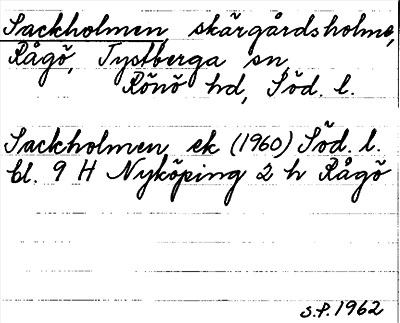 Sackholmen skärgårdsholme,
Rågö, Tystberga sn,
Rönö hd, Söd. l.
Sackholmen ek (1960) Söd. l.
bl. 9 H Nyköping 2 h Rågö
S.P. 1962